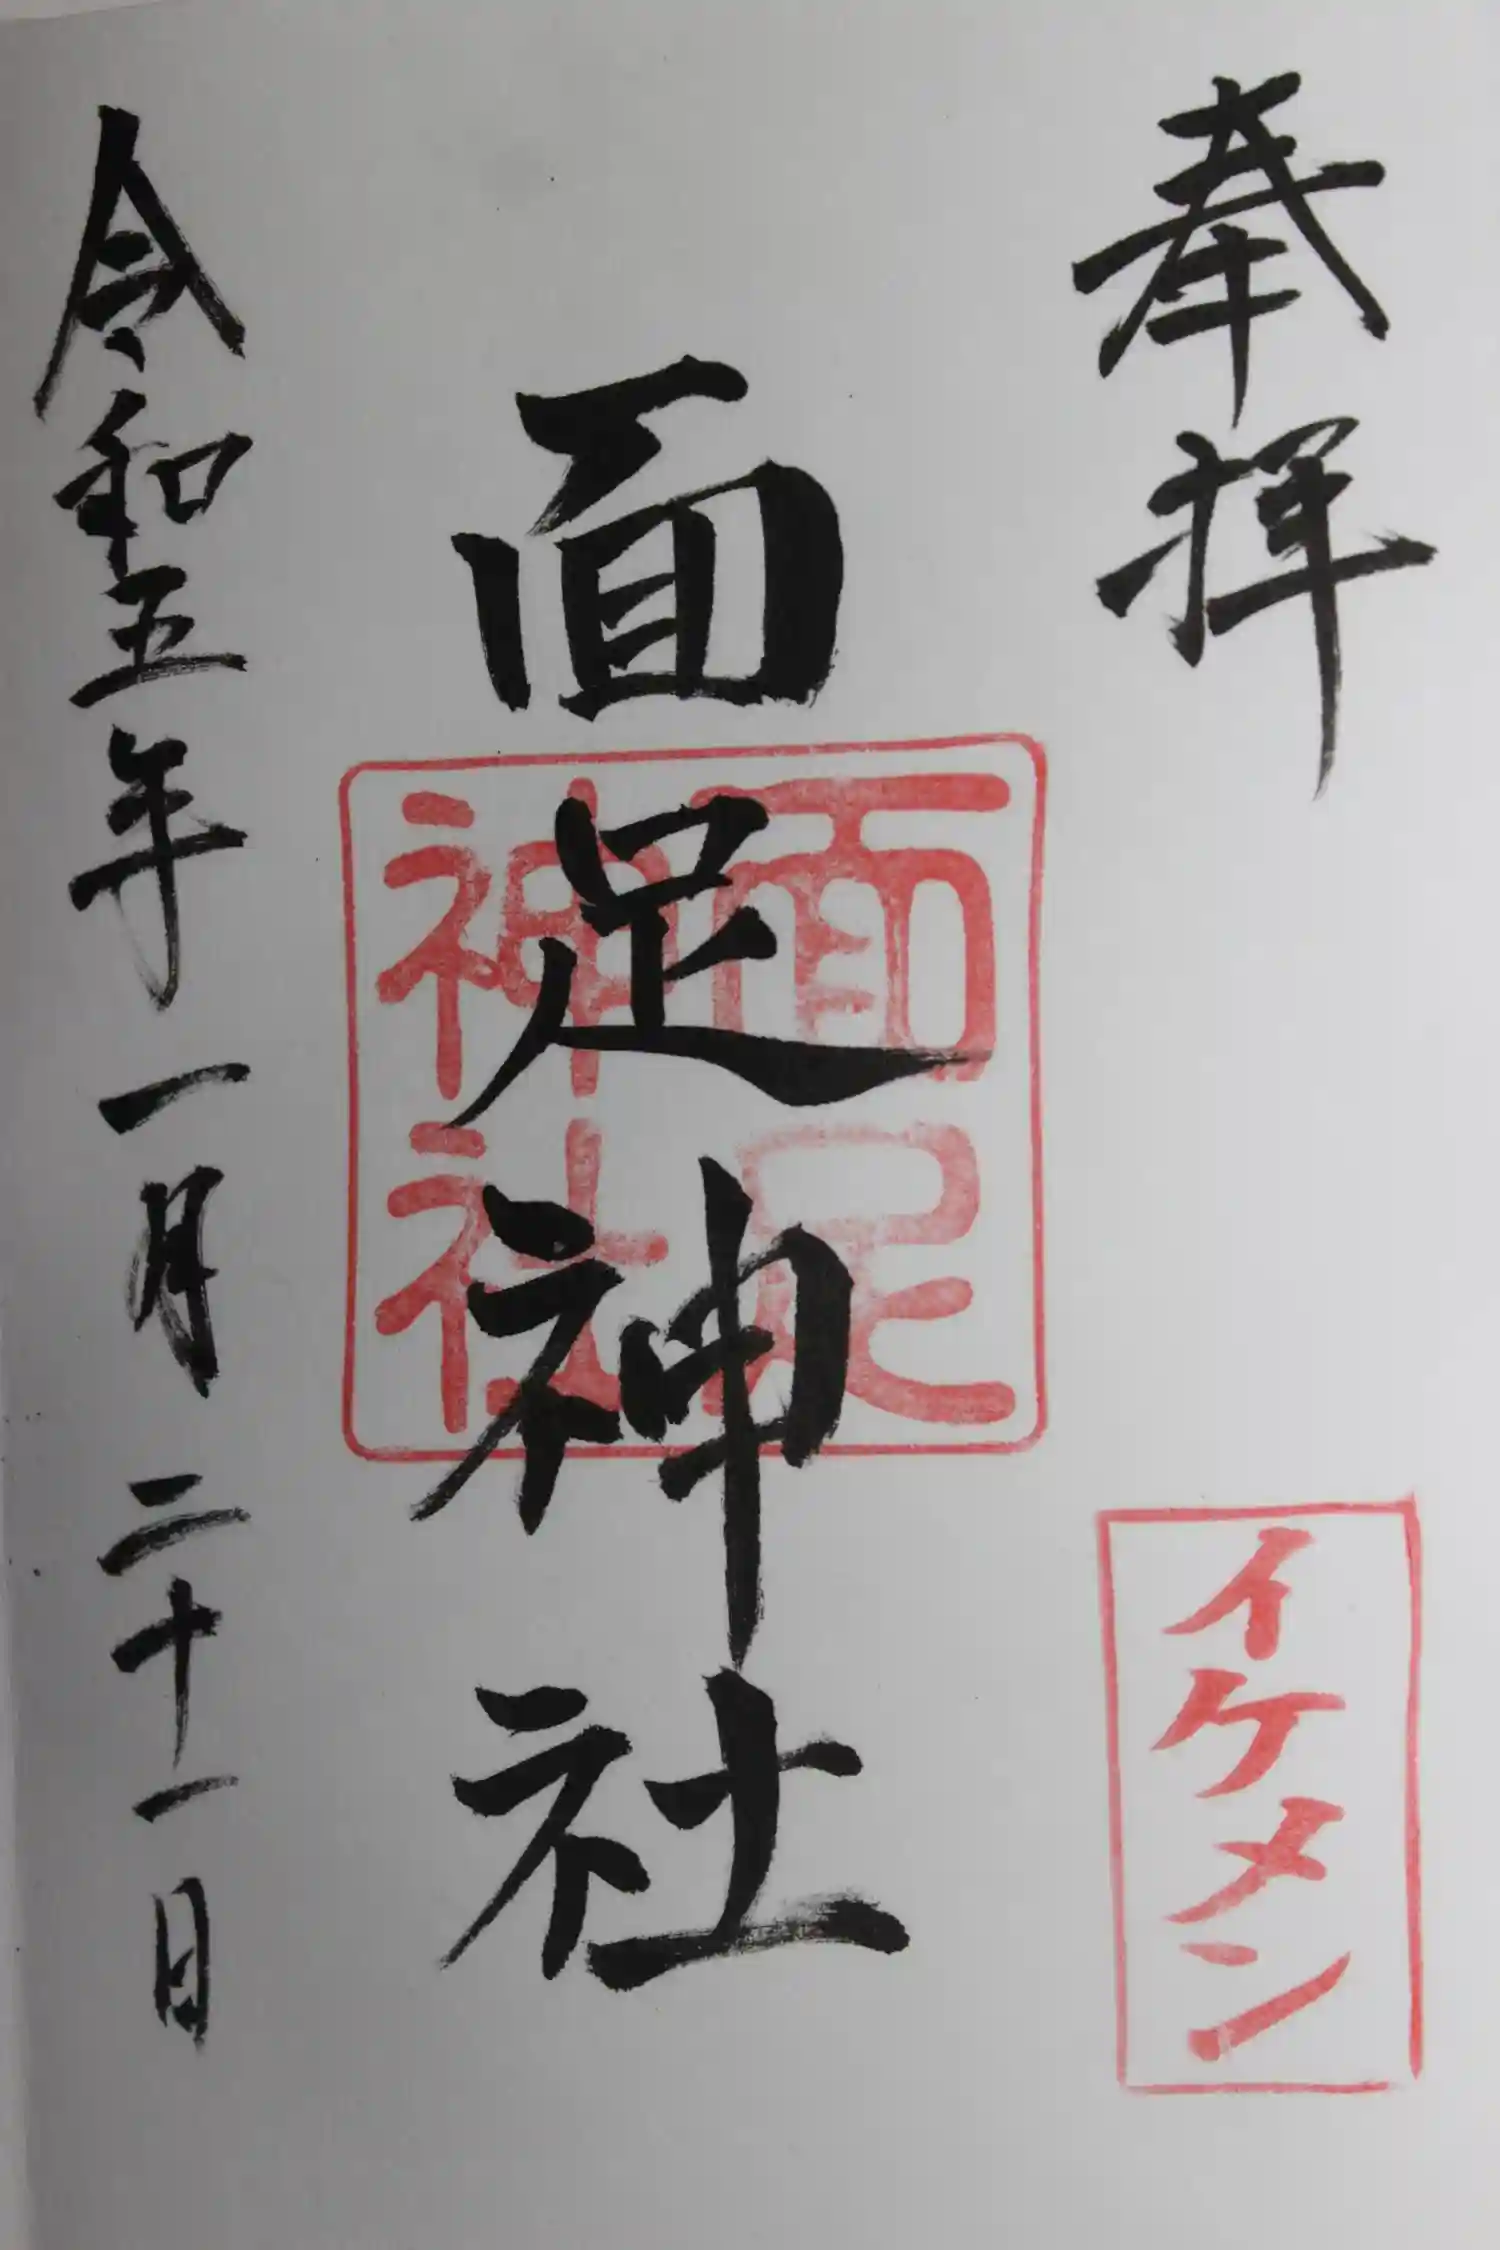 奉拝
イケメン
面足神社
面足
神社
令和五年一月二十一日